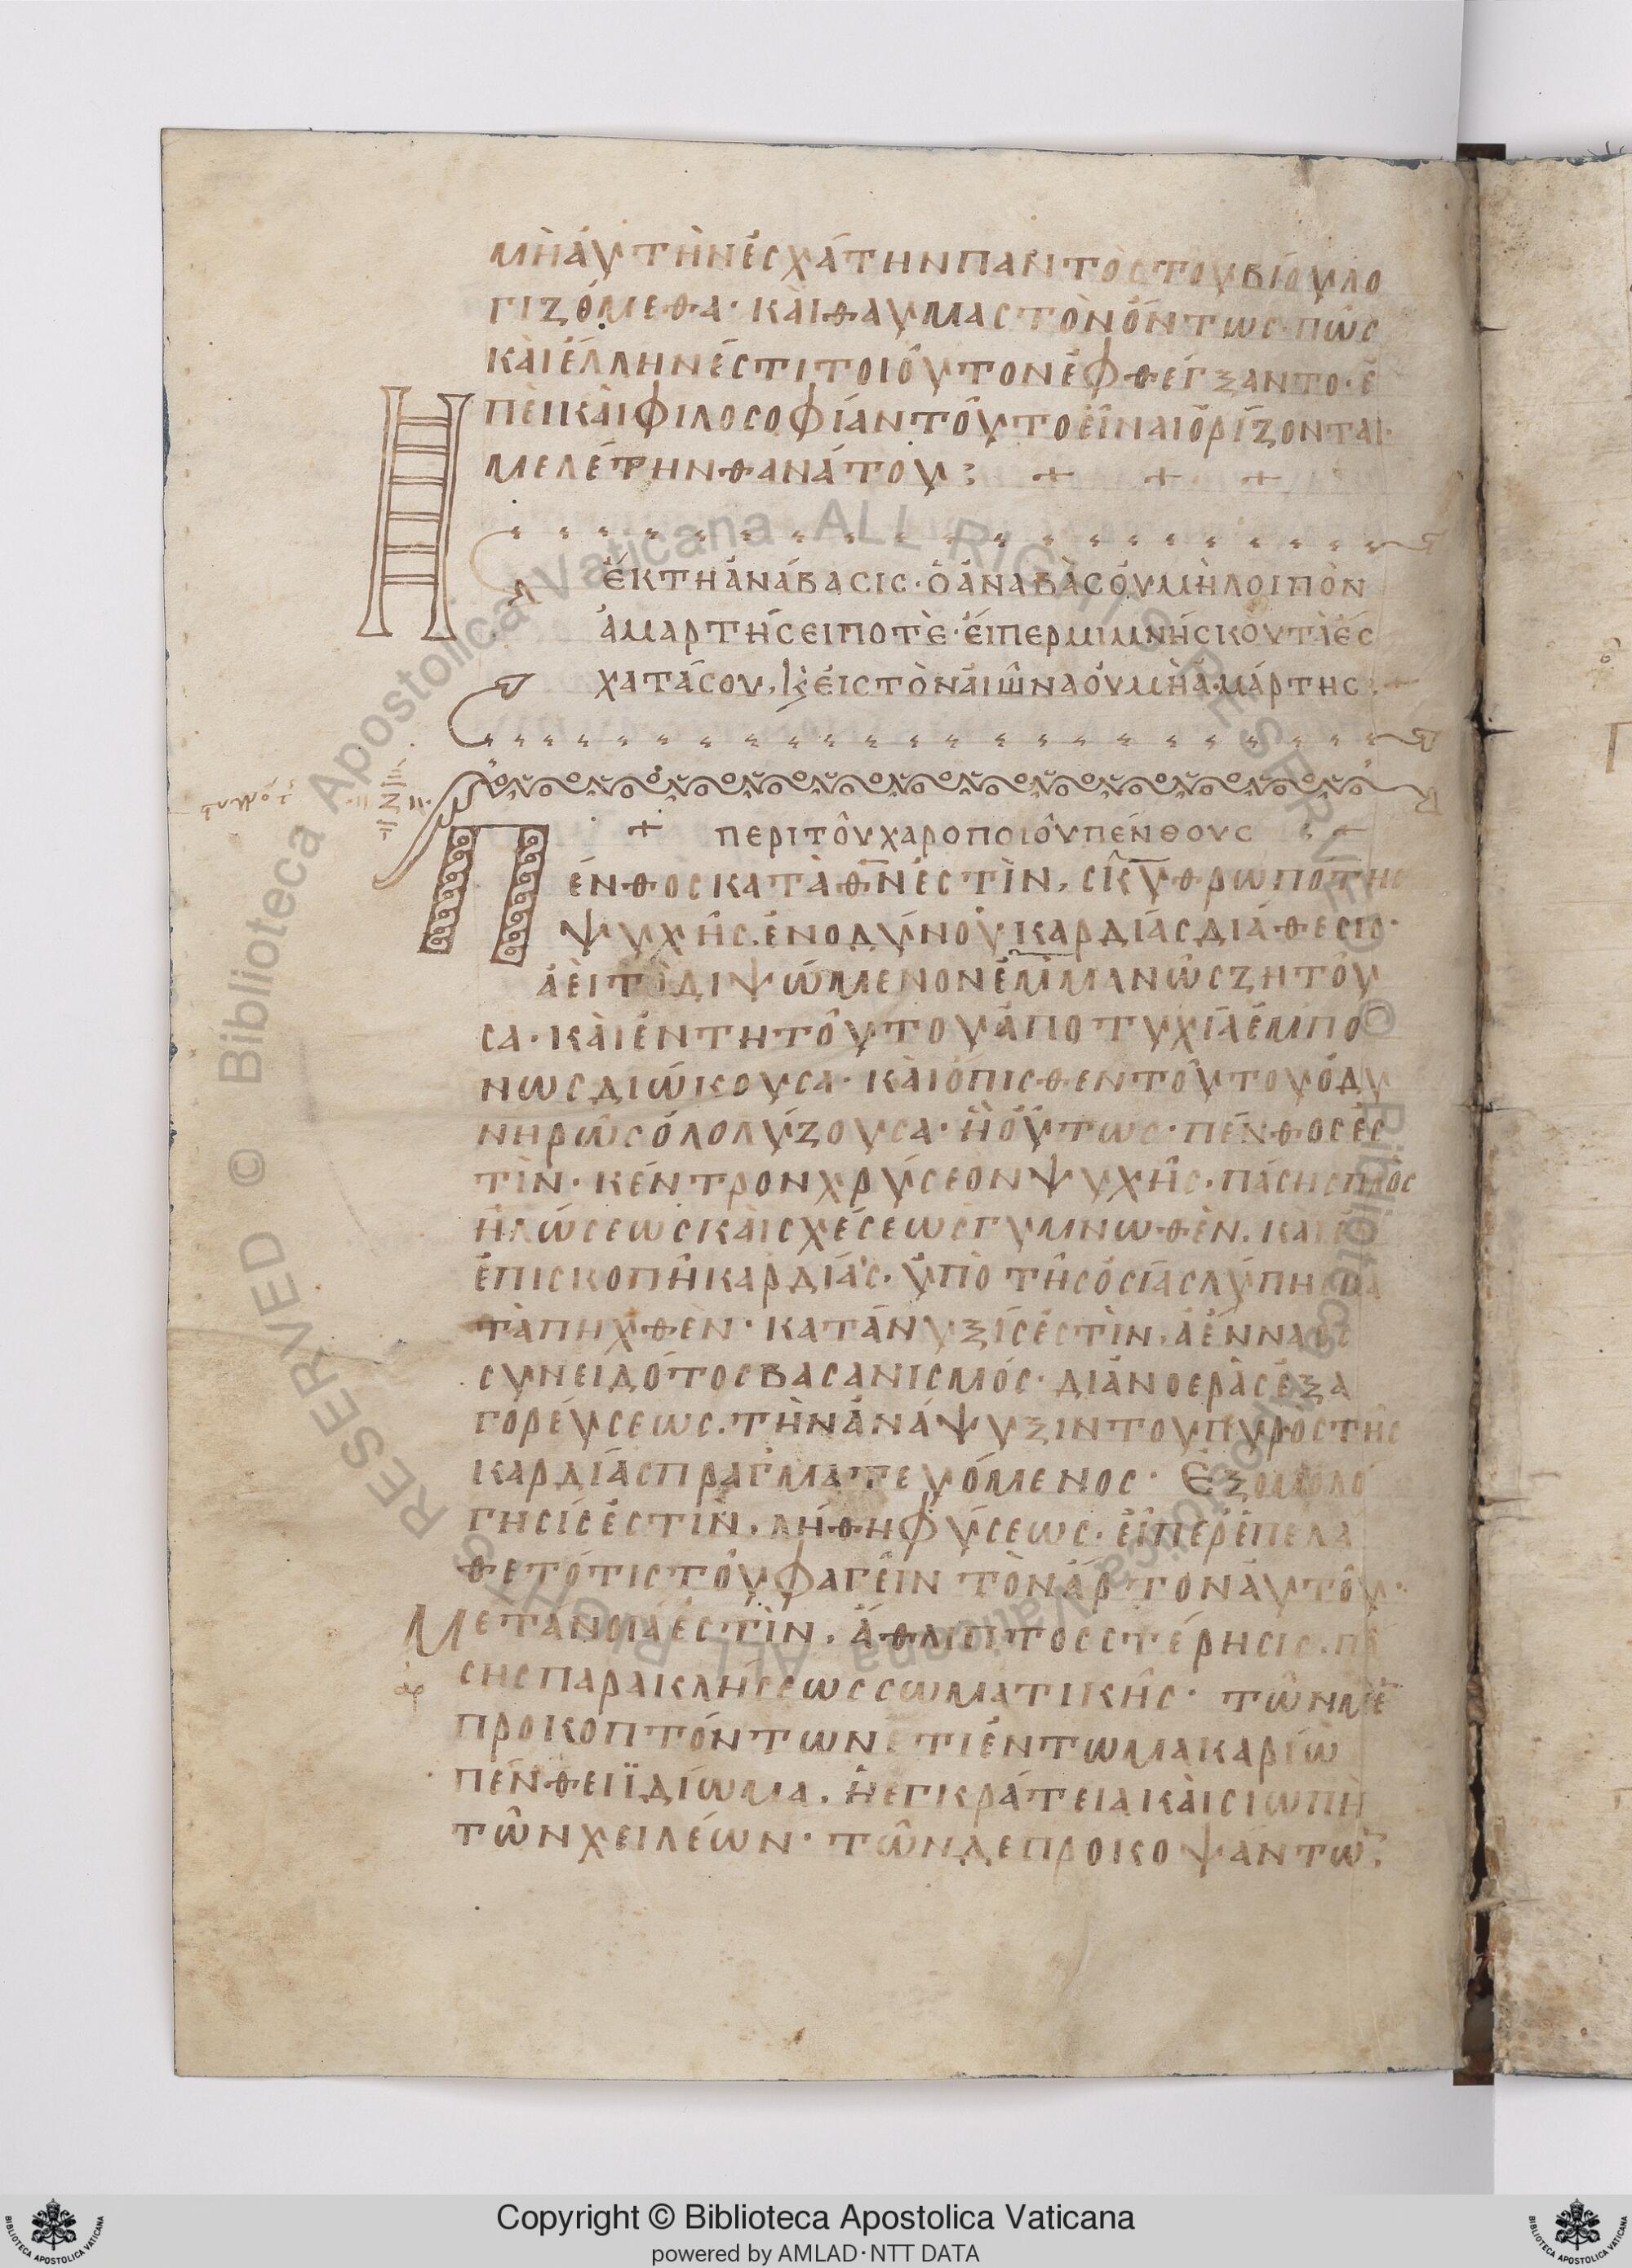 μὴ ἀυτὴν ἐσχάτην παντὸς του βίου λο
γιζόμεθα· καὶ θαυμαστὸν ὄντως· πῶς
καὶ ἕλληνές τι τοιοῦτον ἐφθέγξαντο· ἐ
πεὶ καὶ φιλοσοφίαν τοῦτο εἶναι ὁρίζονται·
μελέτην θανάτου: + + +
ἕκτη ἀνάβασις· ὁ ἀναβὰς ὀυ μὴ λοιπὸν
ἁμαρτήσει ποτὲ· ἐίπερ μιμνήσκου τὰ ἔσ
χατά σου, κ̀ ἐις τὸν ἀιῶνα ὀυ μὴ ἁμάρτης
+ περι τοῦ χαροποιοῦ πένθους :+
Πένθος κατὰ θν̅ ἐστὶν, σκυθρωπότης
ψυχῆς. ἐνοδύνου καρδίας διάθεσις·
ἀεὶ τὸ διψώμενον ἐμμανῶς ζητου
σα· καὶ ἐν τη τούτου ἀποτυχία ἐμπο
νως διώκουσα· καὶ όπισθεν τούτου ὀδυ
νηρῶς ὀλολύζουσα· ἢ οὕτως· πένθος ἐσ
τὶν· κέντρον χρύσεον ψυχῆς· πάσης προσ
ηλώσεως καὶ σχέσεως γυμνωθὲν. καὶ ἐν
ἐπισκοπῆ καρδίας· ὑπὸ τῆς ὁσίας λύπης κα
τὰπηχθὲν· κατάνυξίς ἐστὶν, ἀένναος
συνειδότος βασανισμός· διὰ νοερᾶς ἐξα
γορέυσεως. τὴν ἀνάψυξιν του πυρὸς τῆς
καρδίας πραγματευόμενος· Εξομολό
γησίς ἐστὶν, λήθη φύσεως· ἐίπερ ἐπελά
θετό τις του φαγεῖν τὸν ἄρτον αὐτοῦ·
Μετάνοιά ἐστὶν, ἄθλιπτος στέρησις. πά
σης παρακλήσεως σωματικῆς· τῶν μὲ̅
προκοπτόντων ἔτι ἐν τω μακαρίω
πένθει ϊδίωμα, ἡ εγκράτεια καὶ σιωπὴ
τῶν χειλέων· τῶν δε προκοψάντω̅,
Copyright © Biblioteca Apostolica Vaticana
powered by AMLAD·NTT DATA